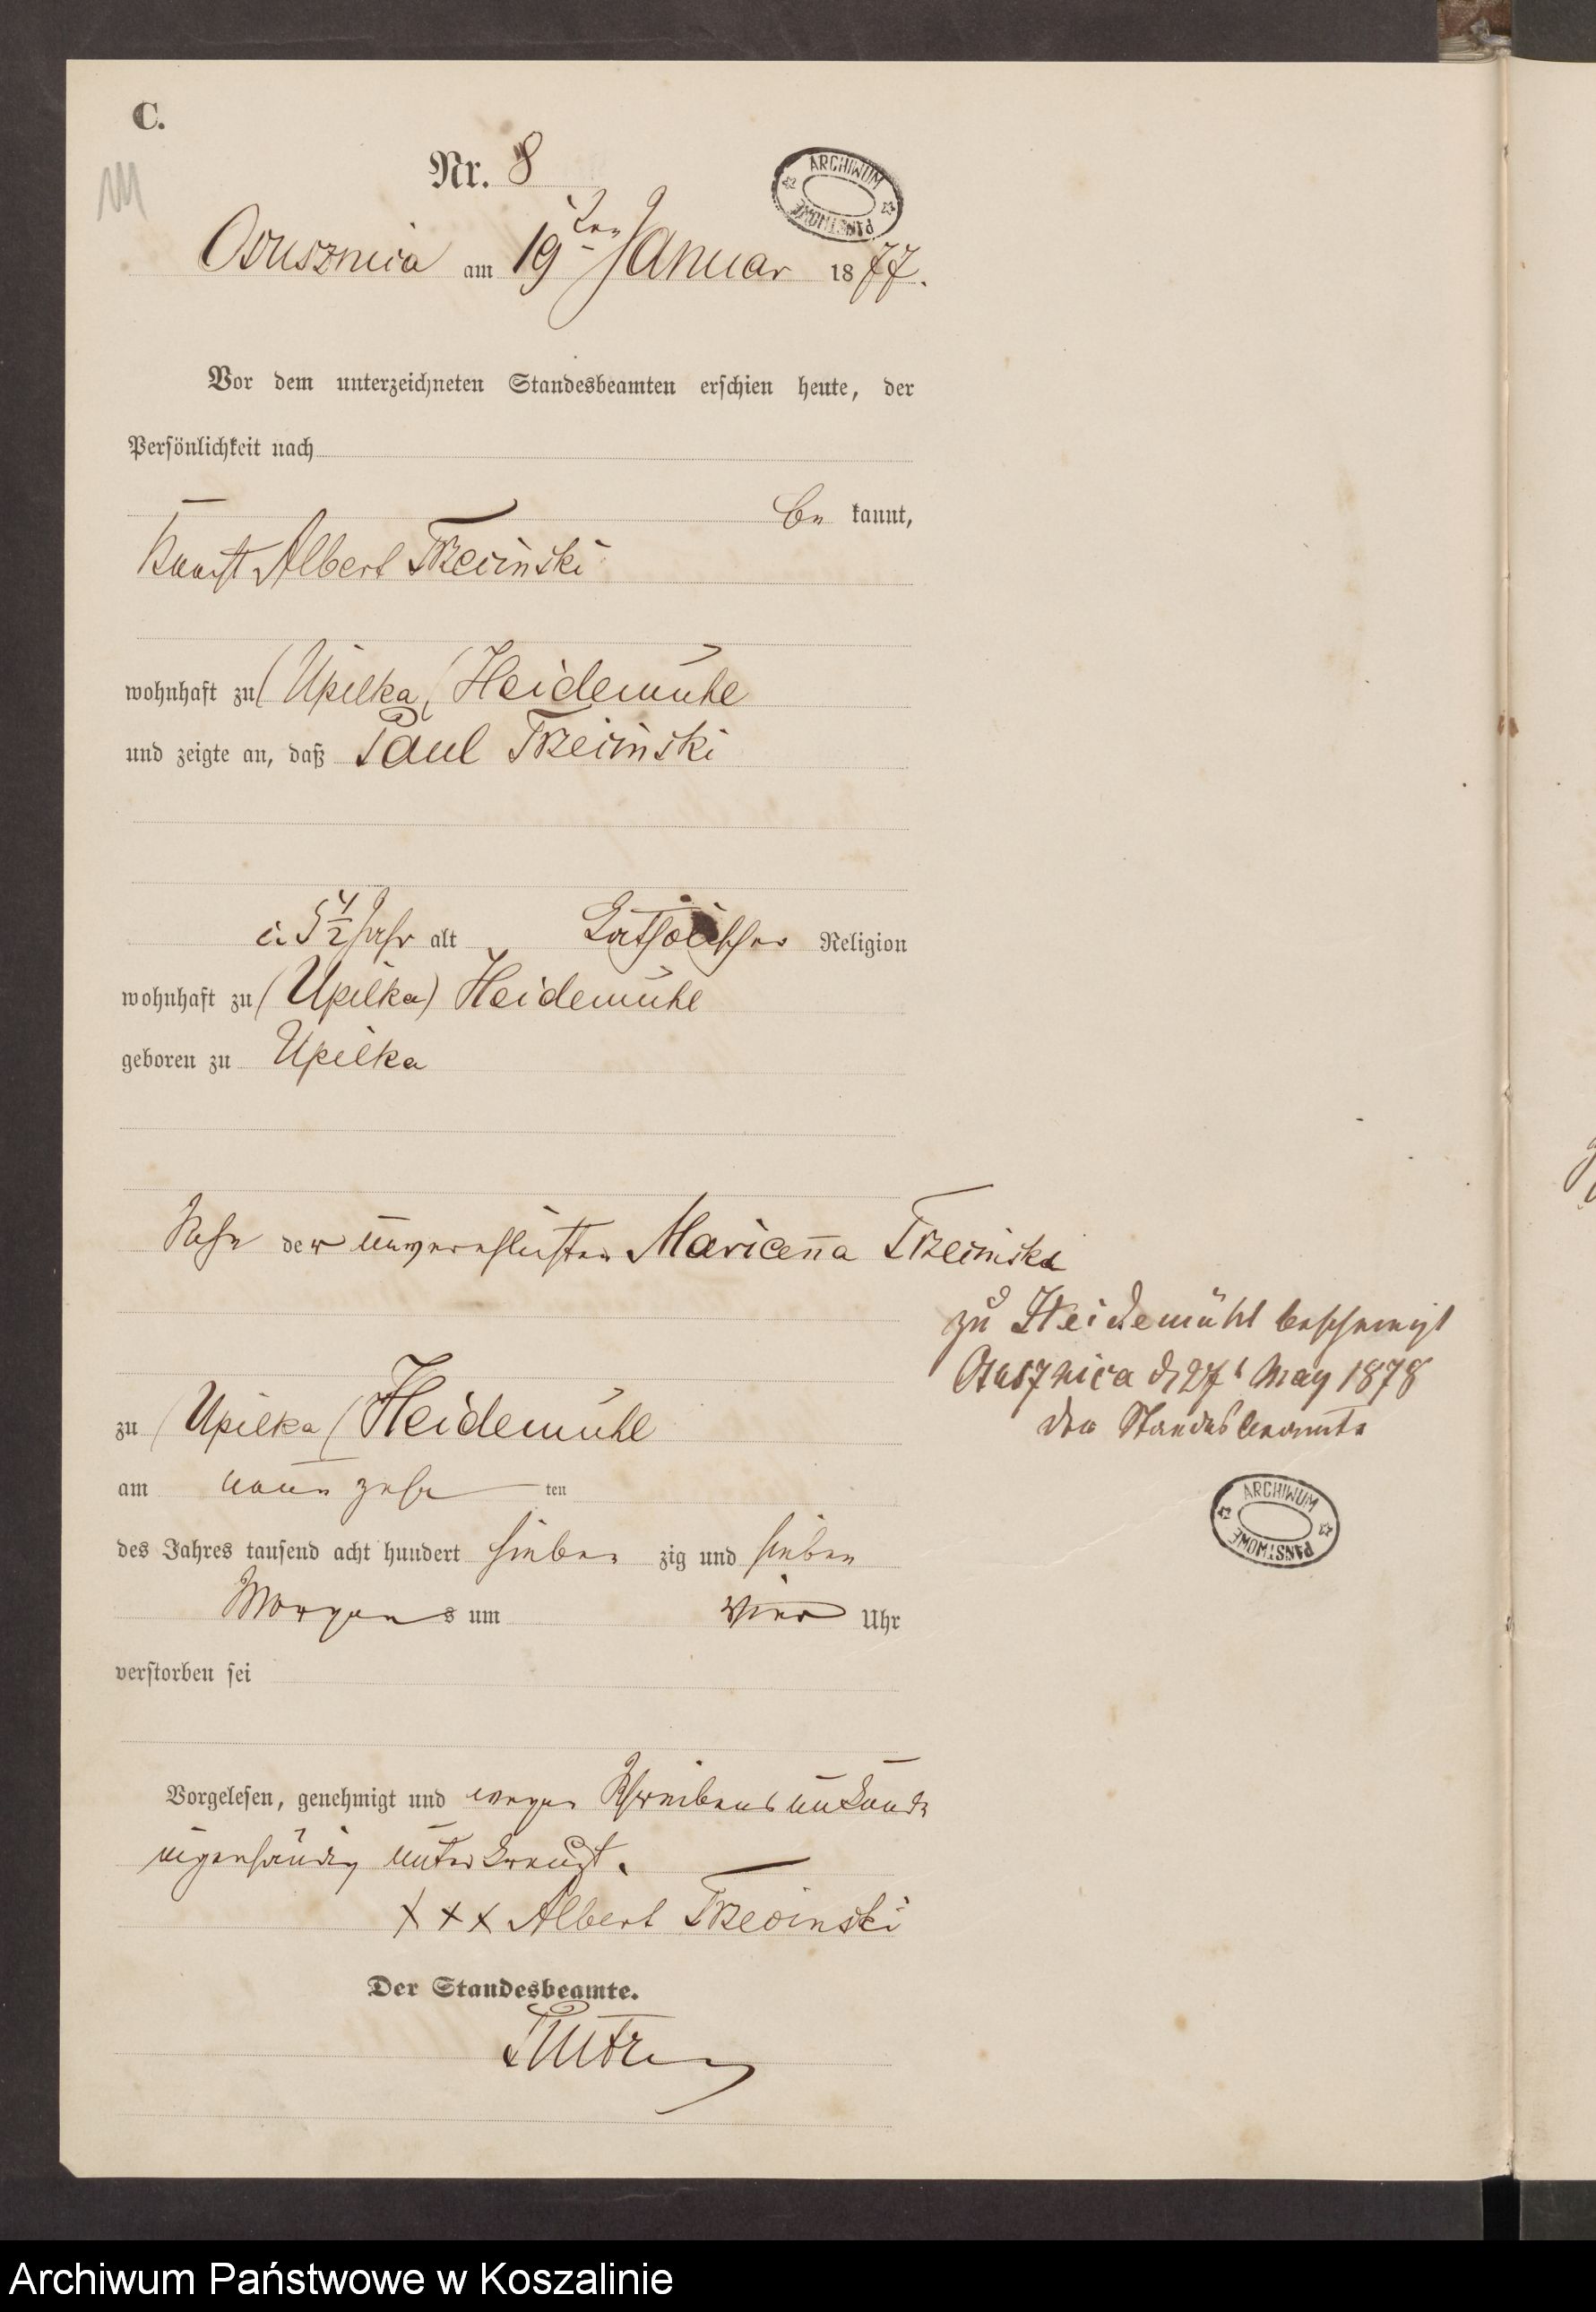 C.
Nr. 8
ARCHIWUM PAŃSTWOWE
am 19ten Januar 1877.
Vor dem unterzeichneten Standesbeamten erschien heute, der
Persönlichkeit nach
be kannt,
Albert Trzecinski
wohnhaft zu (Upilka) Heidemühl
und zeigte an, daß Paul Trzecinski
5 1/2 Jahr alt Katholischer Religion
wohnhaft zu (Upilka) Heidemühl
geboren zu Upilka
Sohn der unverehlichten Maricenna Trzecinska
zu Heidemühl bescheinigt
May 1878
der Standesbeamte
zu (Upilka) Heidemühl
am neun zehn ten
des Jahres tausend acht hundert sieben zig und sieben
Morgens um vier Uhr
ARCHIWUM PAŃSTWOWE
verstorben sei
Vorgelesen, genehmigt und wegen Schreibens unkunde
eigenhändig unterkreuzt.
XXX Albert Trzecinski
Der Standesbeamte.
Archiwum Państwowe w Koszalinie